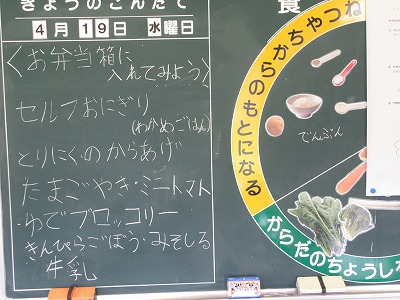 きょうのこんだて
4月19日 水曜日
〈お弁当箱に
入れてみよう〉
セルフおにぎり
(わかめごはん)
とりにくのからあげ
たまごやき・ミニトマト
ゆでブロッコリー
きんぴらごぼう・みそしる
牛乳
食
がちゃつね
らのもとになる
でんぷん
からだのちょうしを